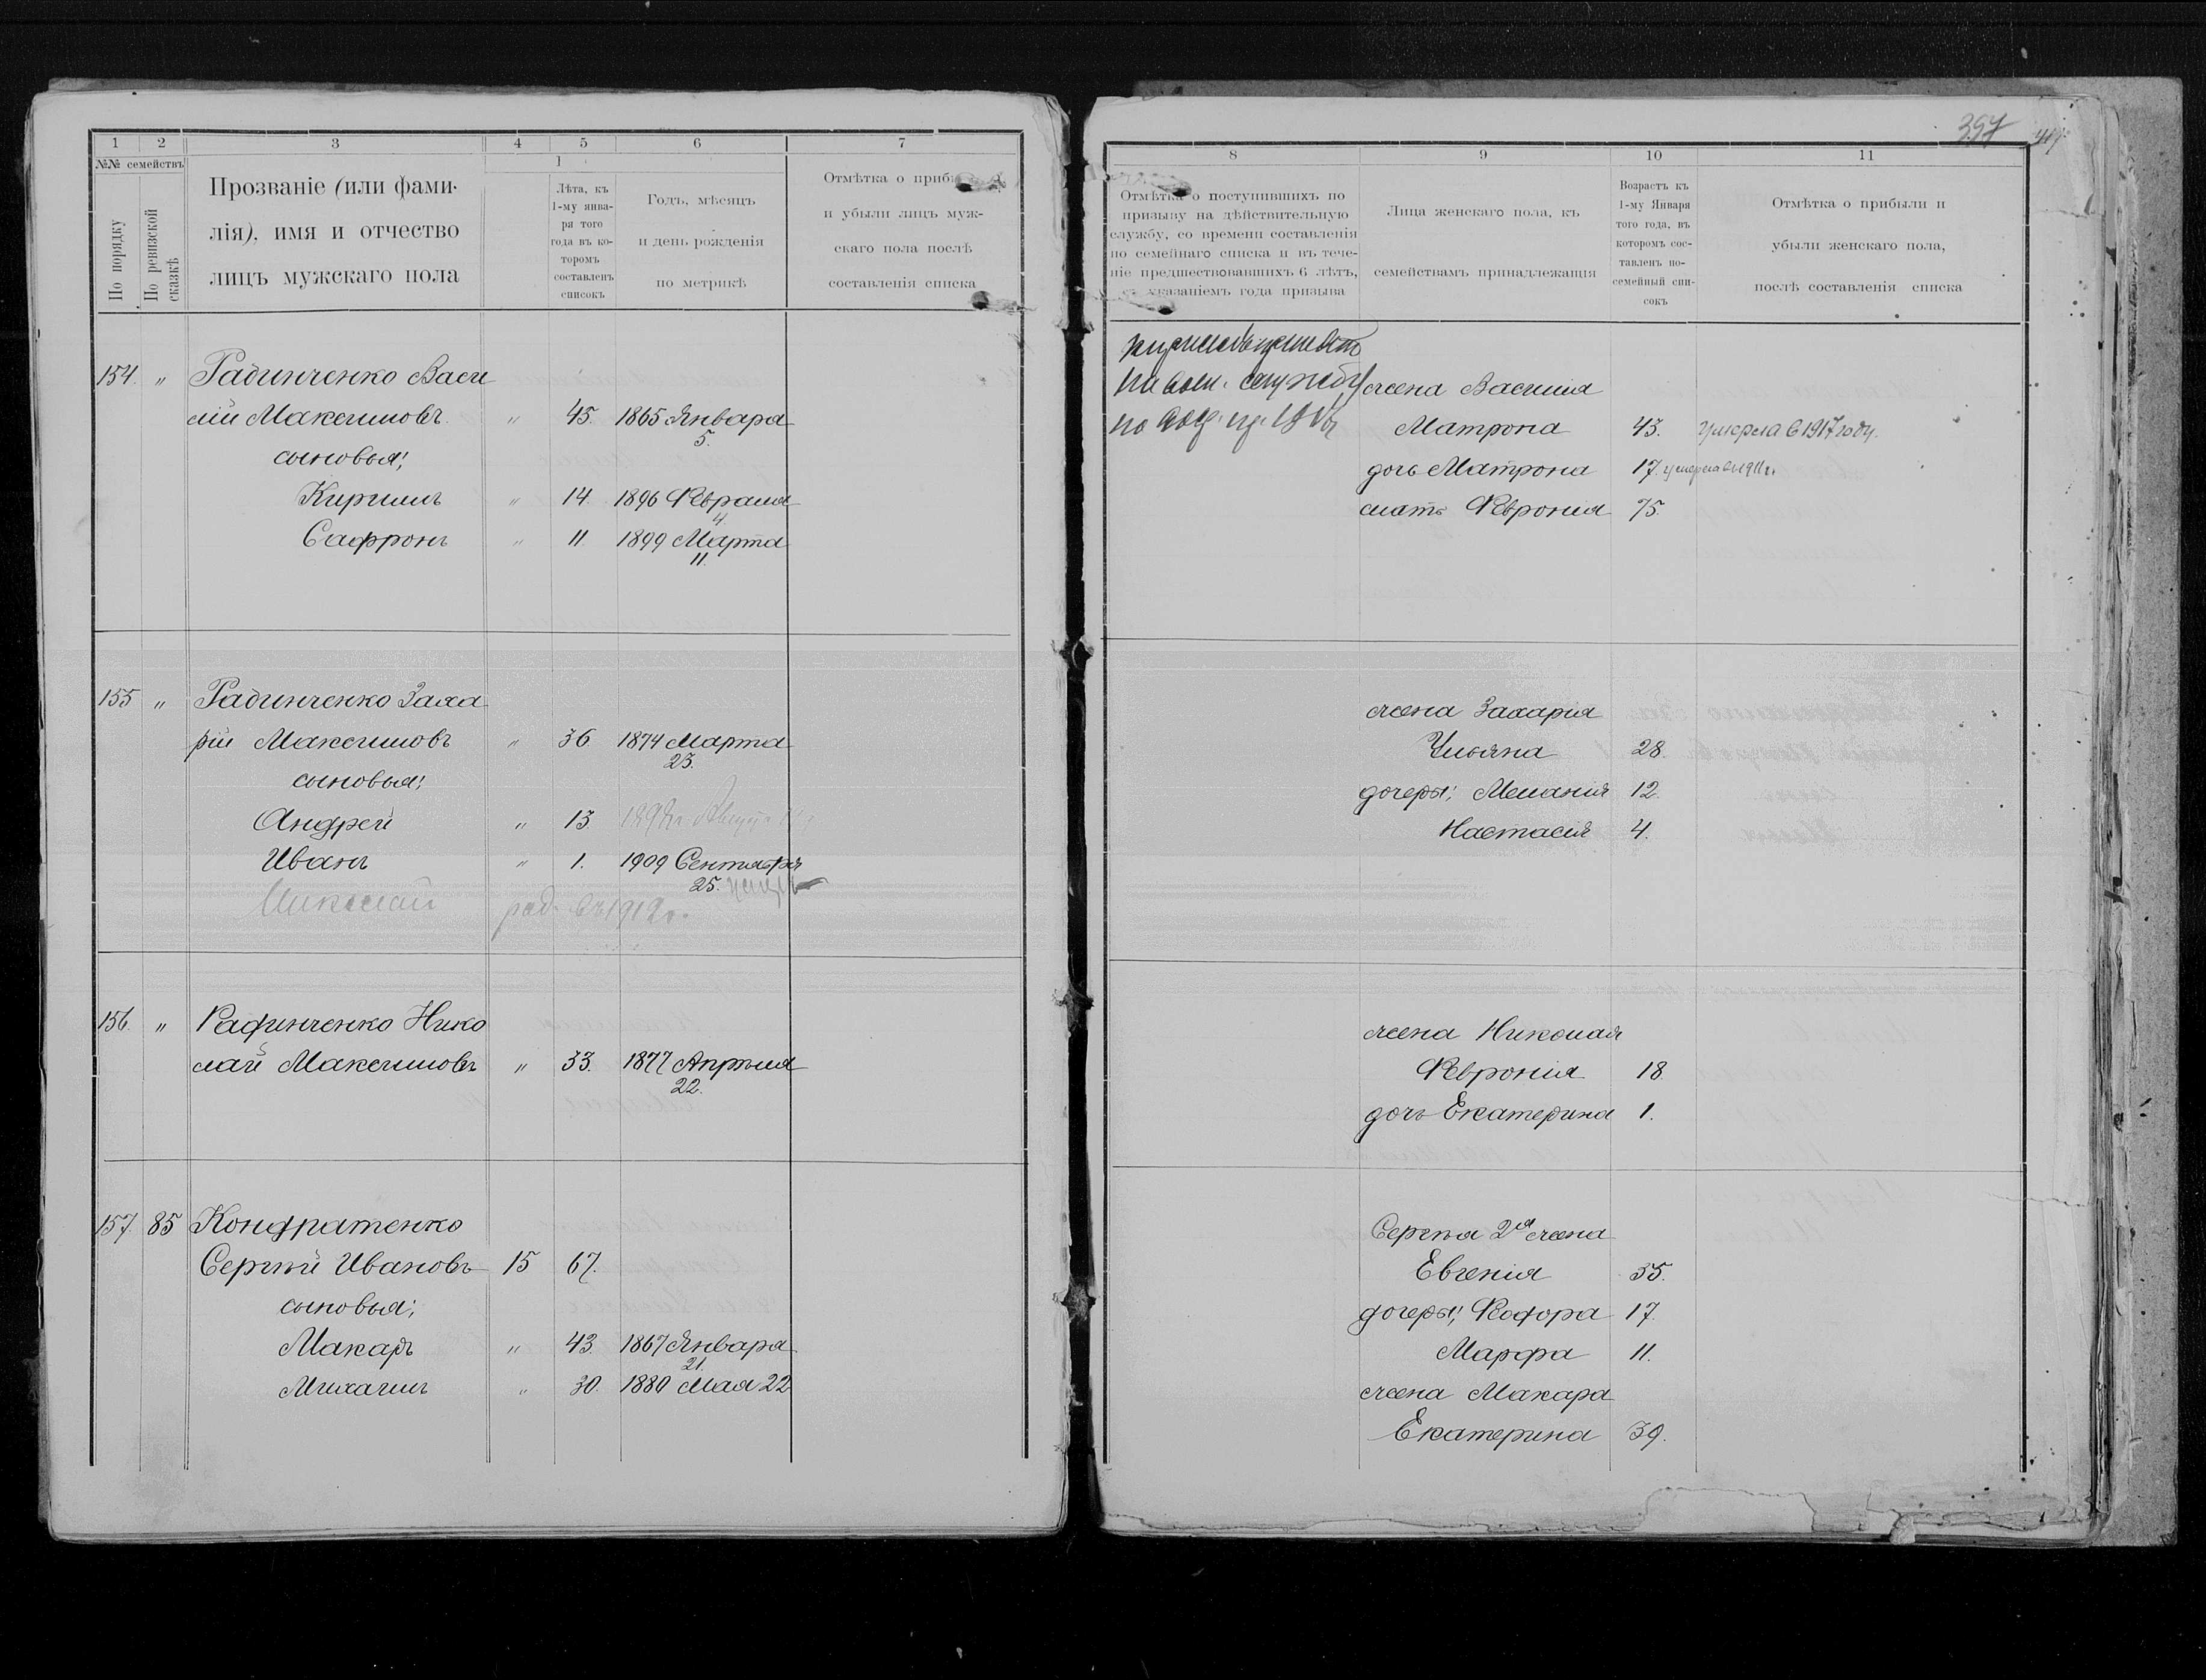 357
1 2 3 4 5 6 7
№№ семействъ
По порядку
По ревизской сказкѣ
Прозваніе (или фами-
лія), имя и отчество
лицъ мужскаго пола
Лѣта, къ
1-му янва-
ря того
года въ ко-
торомъ
составленъ
списокъ
Годъ, мѣсяцъ
и день рожденія
по метрикѣ
Отмѣтка о
и убыли лицъ муж-
скаго пола послѣ
составленія списка
154. " Радинченко Васи
лій Максимовъ " 45. 1865 Января
5.
сыновья:
Кирилъ " 14. 1896 Февраля
4
Сафронъ " 11 1899 Марта
11.
155 " Радинченко Заха
рій Максимовъ " 36 1874 Марта
23.
сыновья:
Андрей " 13
Иванъ " 1. 1909 Сентября
25.
Николай род. въ 1912 г.
156. " Радинченко Нико
лай Максимовъ " 33. 1877 Апрѣля
22.
157. 85 Кондратенко
Сергѣй Ивановъ 15 67.
сыновья:
Макаръ " 43. 1867 Января
21.
Михаилъ " 30. 1880 Мая 22
8 9 10 11
Отмѣтка о поступившихъ по
призыву на дѣйствительную
службу, со времени составленія
по семейнаго списка и въ тече-
ніе предшествовавшихъ 6 лѣтъ,
съ указаніемъ года призыва
Лица женскаго пола, къ
семействамъ принадлежащія
Возрастъ къ
1-му Января
того года, въ
которомъ сос-
тавленъ по-
семейный спи-
сокъ
Отмѣтка о прибыли и
убыли женскаго пола,
послѣ составленія списка
службу жена Василія
Матрона 43. умерла в 1917 году.
дочь Матрона 17. умерла въ 1911 г.
мать Февронія 75.
жена Захарія
Ульяна 28.
дочери: Меланія 12.
Настасія 4.
жена Николая
Февронія 18.
дочь Екатерина 1.
Сергѣя 2я жена
Евгенія 35.
дочери: Федора 17.
Марфа 11.
жена Макара
Екатерина 39.